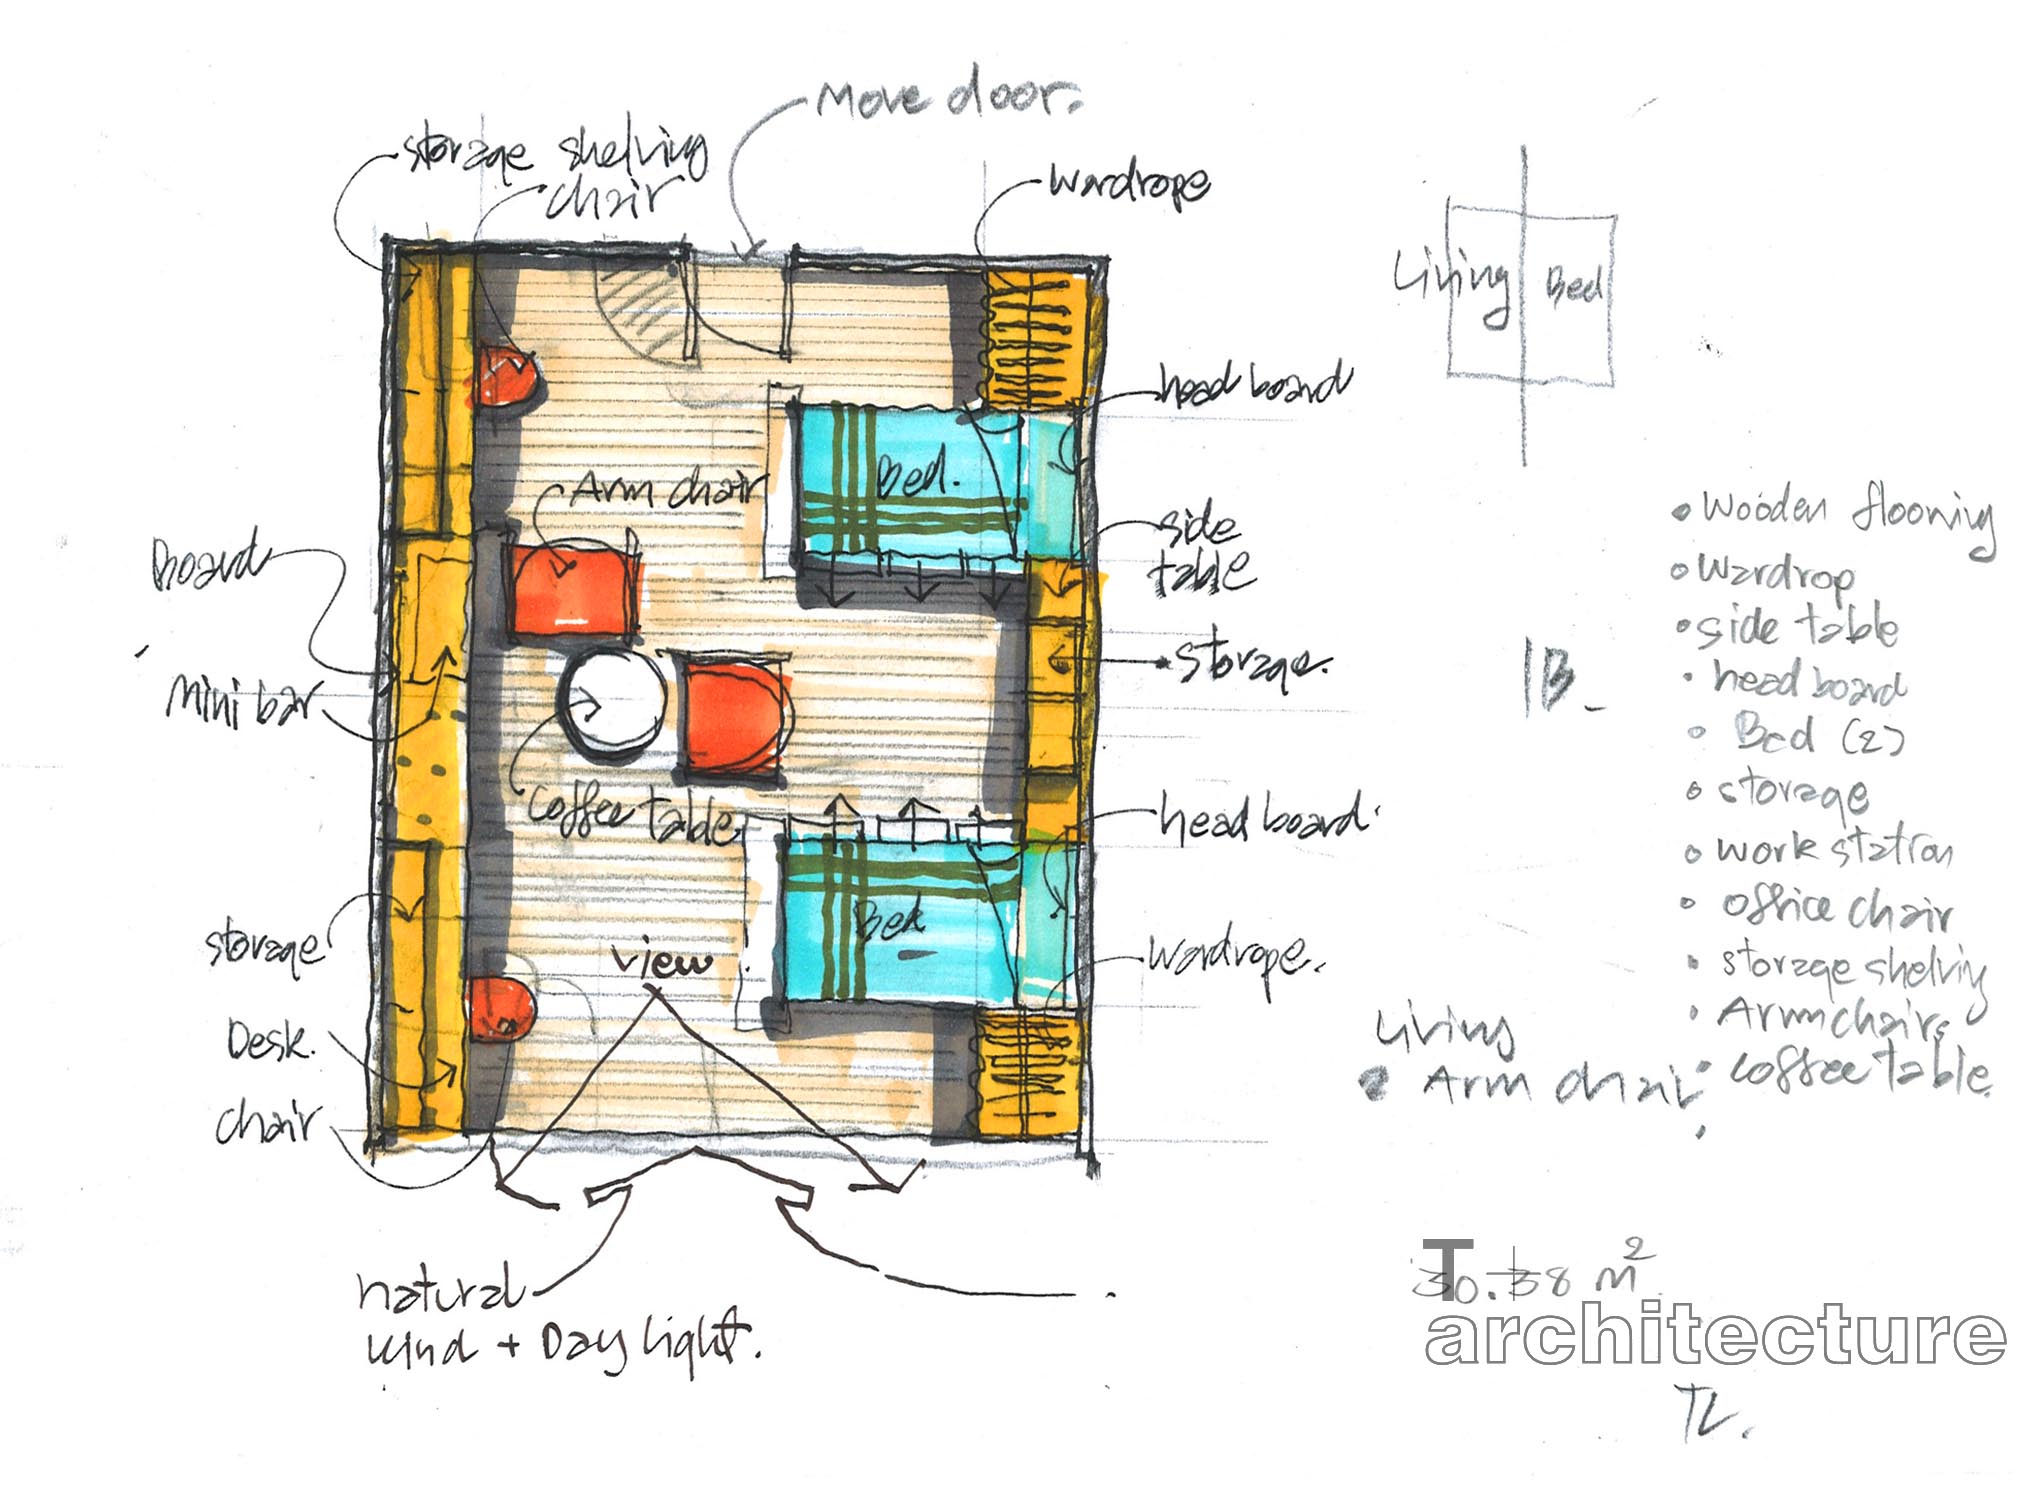 Move door.
storage shelving
chair
wardrope
Living
Bed
head board
Bed.
Arm chair
side
table
board
storage.
Mini bar
1B.
coffee table
head board.
Bed
storage
view
wardrope.
Desk.
chair
natural
wind + Day light.
• wooden flooring
• wardrop
• side table
• head board
• Bed (2)
• storage
• work station
• office chair
• storage shelving
• Armchairs
• coffee table.
Living
• Arm chair
30.38 m²
T
architecture
TL.